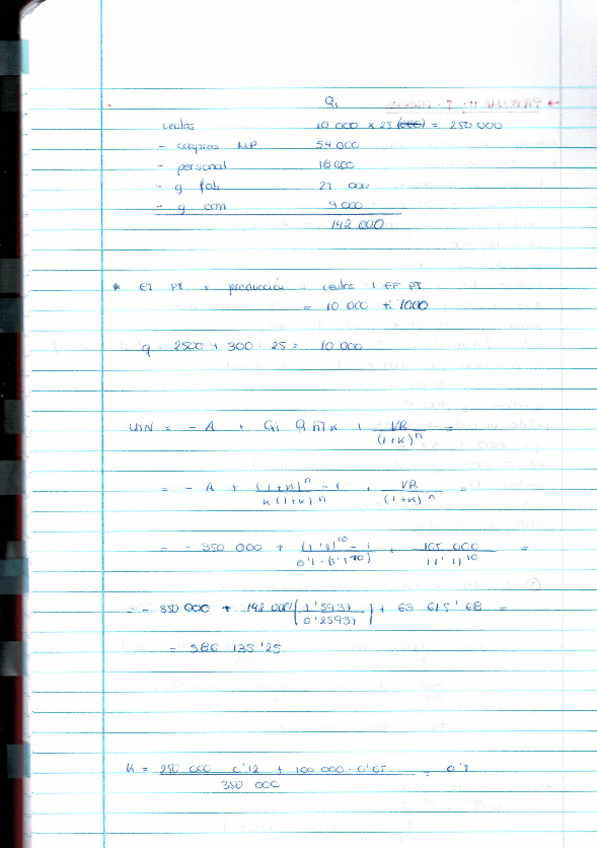 Qi
ventas 10 000 x 25 (000) = 250 000
- compras MP 54 000
- personal 18 000
- g fab 27 000
- g com 9 000
142 000
* EI PT + producción = ventas + EF PT
= 10 000 + 1000
q 2500 + 300 · 25 = 10 000
VAN = - A + Qi a̅n̅k + VR / (1+K)^n =
= - A + (1+K)^n - 1 / K(1+K)^n + VR / (1+K)^n =
= - 350 000 + (1'1)^10 - 1 / 0'1 · (1'1^10) + 165 000 / (1'1)^10 =
= - 350 000 + 142 000 (1'5937 / 0'25937) + 63 615'68 =
= 586 135'25
K = 250 000 · 0'12 + 100 000 · 0'05 / 350 000 = 0'1